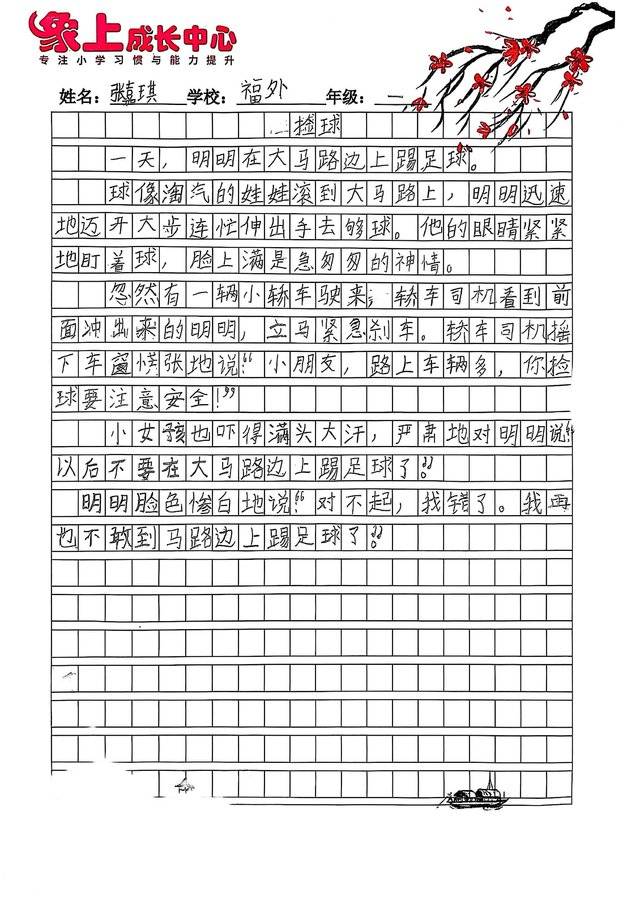 象上成长中心
专注小学习惯与能力提升
姓名：张嘉琪 学校：福外 年级：一
捡球
一天，明明在大马路边上踢足球。
球像淘汽的娃娃滚到大马路上，明明迅速
地迈开大步连忙伸出手去够球。他的眼睛紧紧
地盯着球，脸上满是急匆匆的神情。
忽然有一辆小轿车驶来，轿车司机看到前
面冲出来的明明，立马紧急刹车。轿车司机摇
下车窗慌张地说“小朋友，路上车辆多，你捡
球要注意安全！”
小女孩也吓得满头大汗，严肃地对明明说“
以后不要在大马路边上踢足球了。”
明明脸色惨白地说“对不起，我错了。我再
也不敢到马路边上踢足球了。”